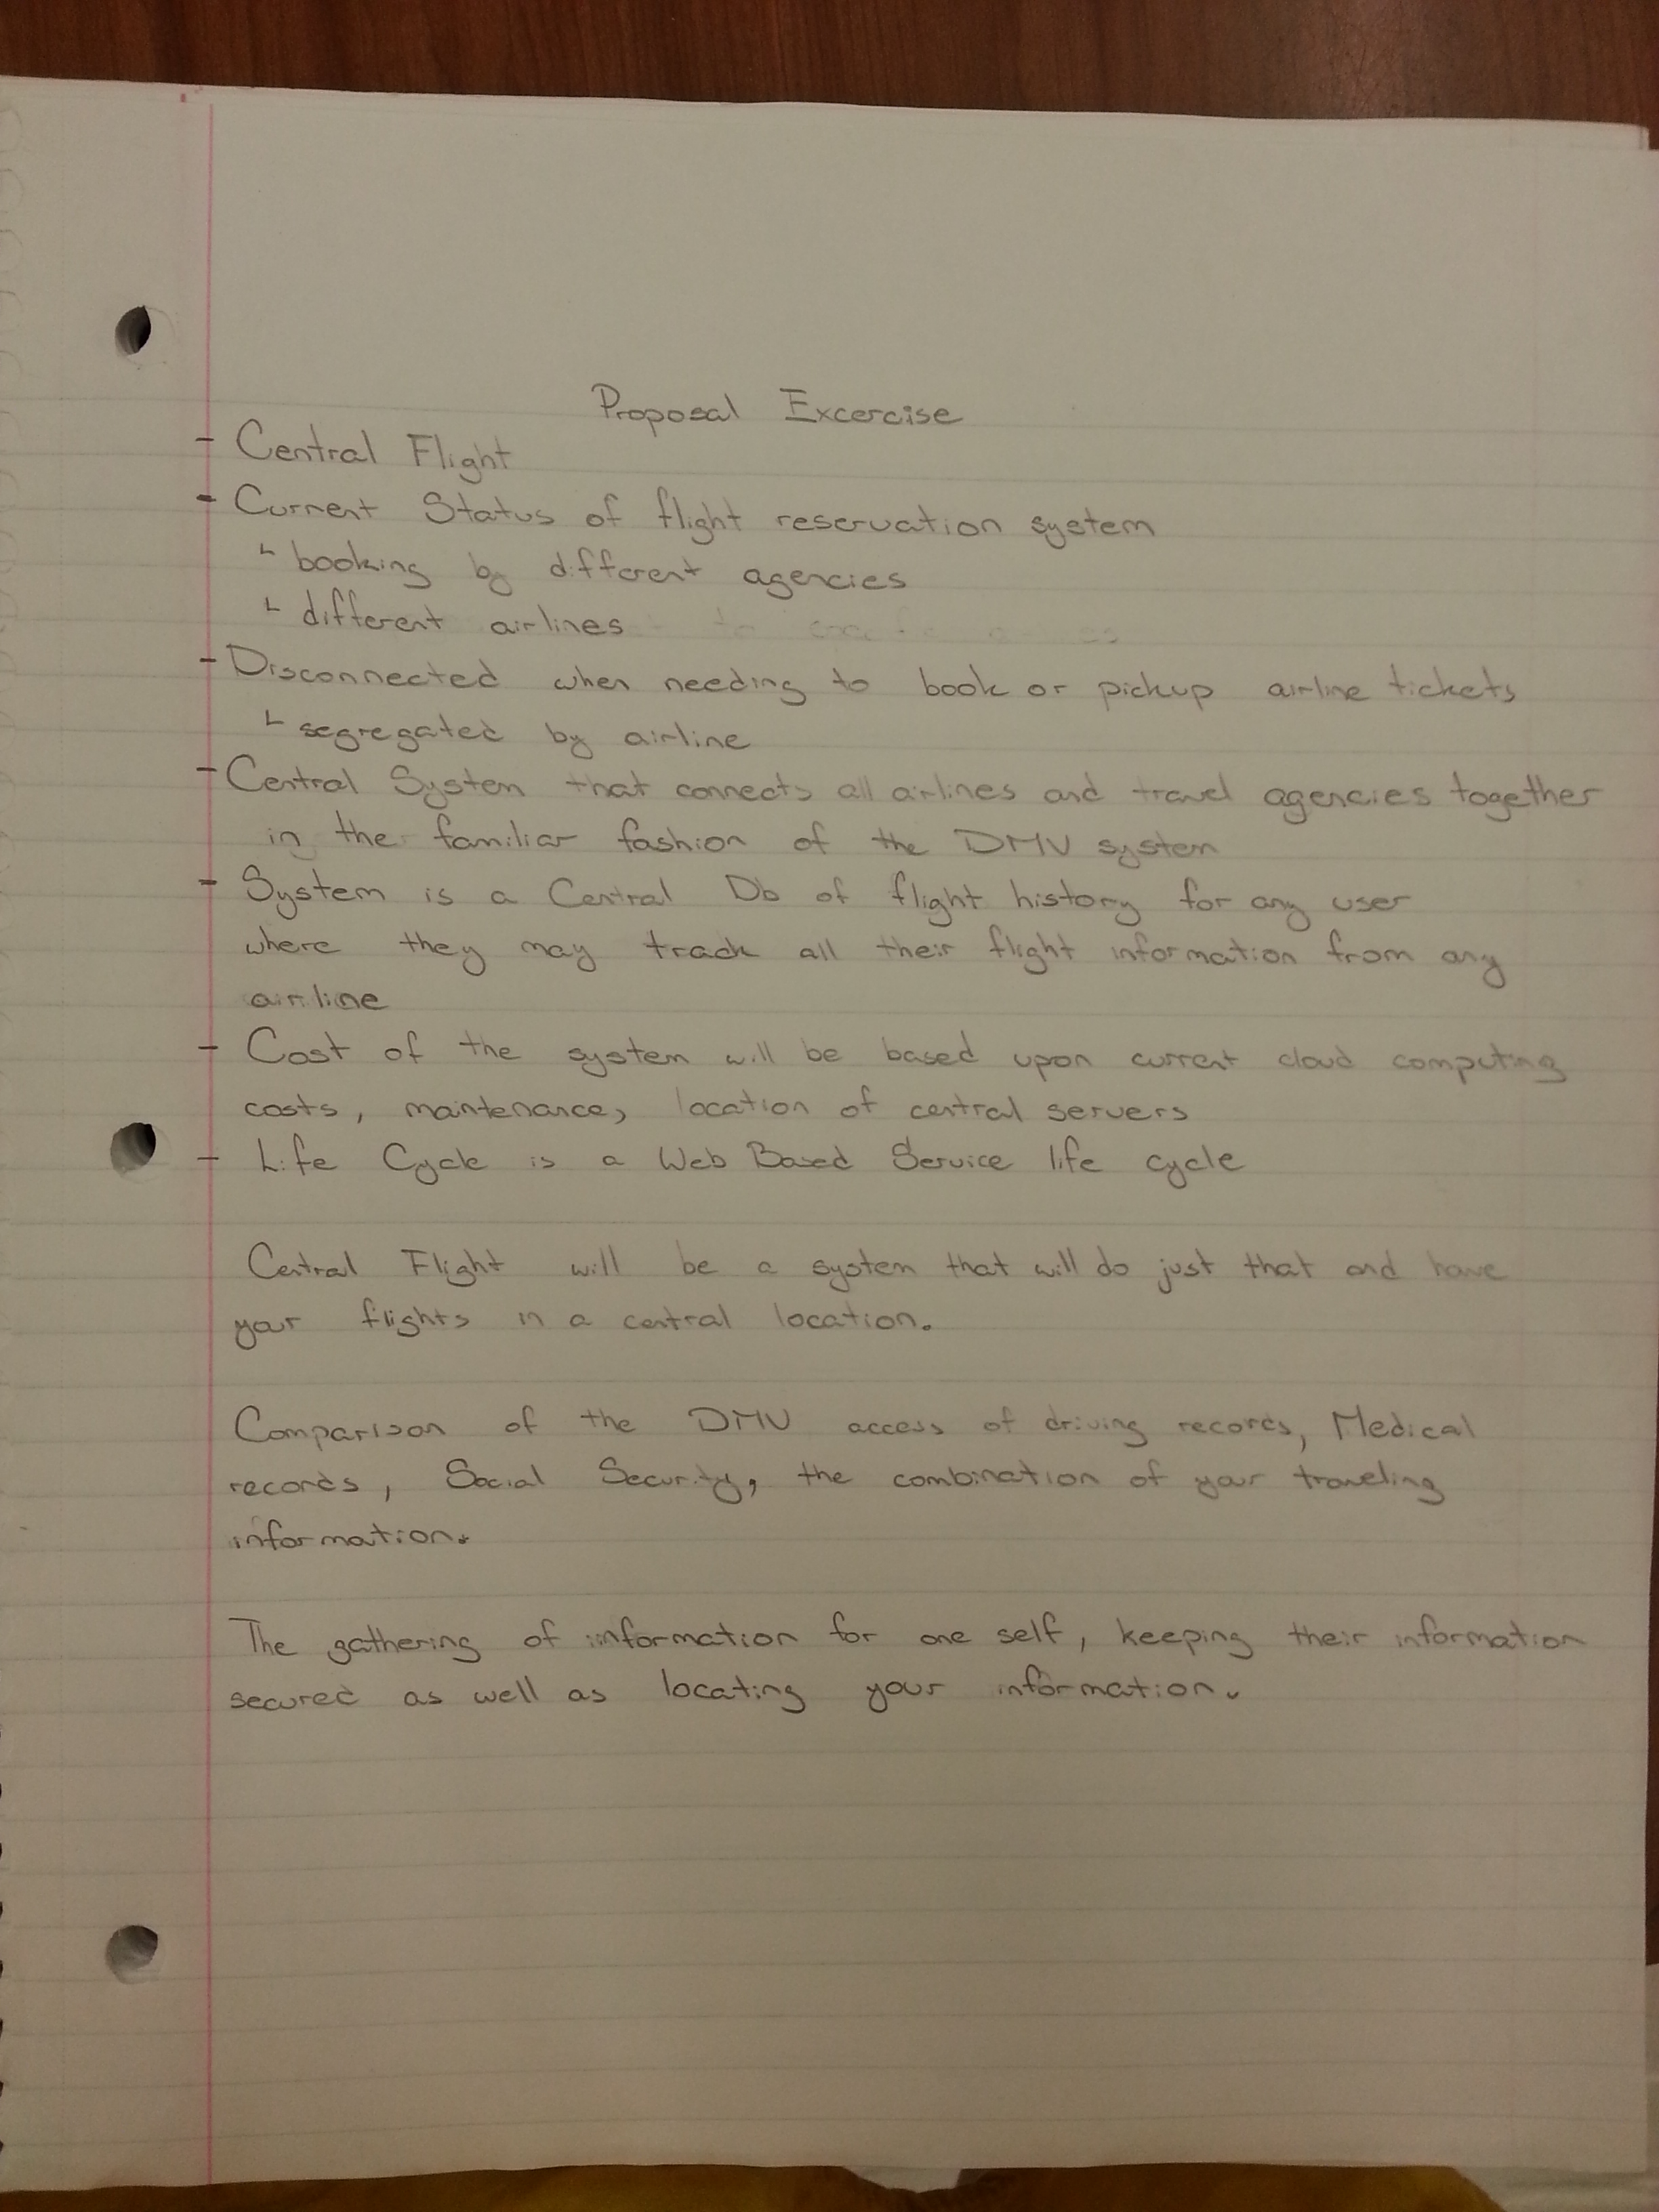 Proposal Excercise
- Central Flight
- Current Status of flight reservation system
└ booking by different agencies
└ different airlines
- Disconnected when needing to book or pickup airline tickets
└ segregated by airline
- Central System that connects all airlines and travel agencies together
in the familiar fashion of the DMV system
- System is a Central Db of flight history for any user
where they may track all their flight information from any
airline
- Cost of the system will be based upon current cloud computing
costs, maintenance, location of central servers
- Life Cycle is a Web Based Service life cycle
Central Flight will be a system that will do just that and have
your flights in a central location.
Comparison of the DMV access of driving records, Medical
records, Social Security, the combination of your traveling
information.
The gathering of information for one self, keeping their information
secured as well as locating your information.